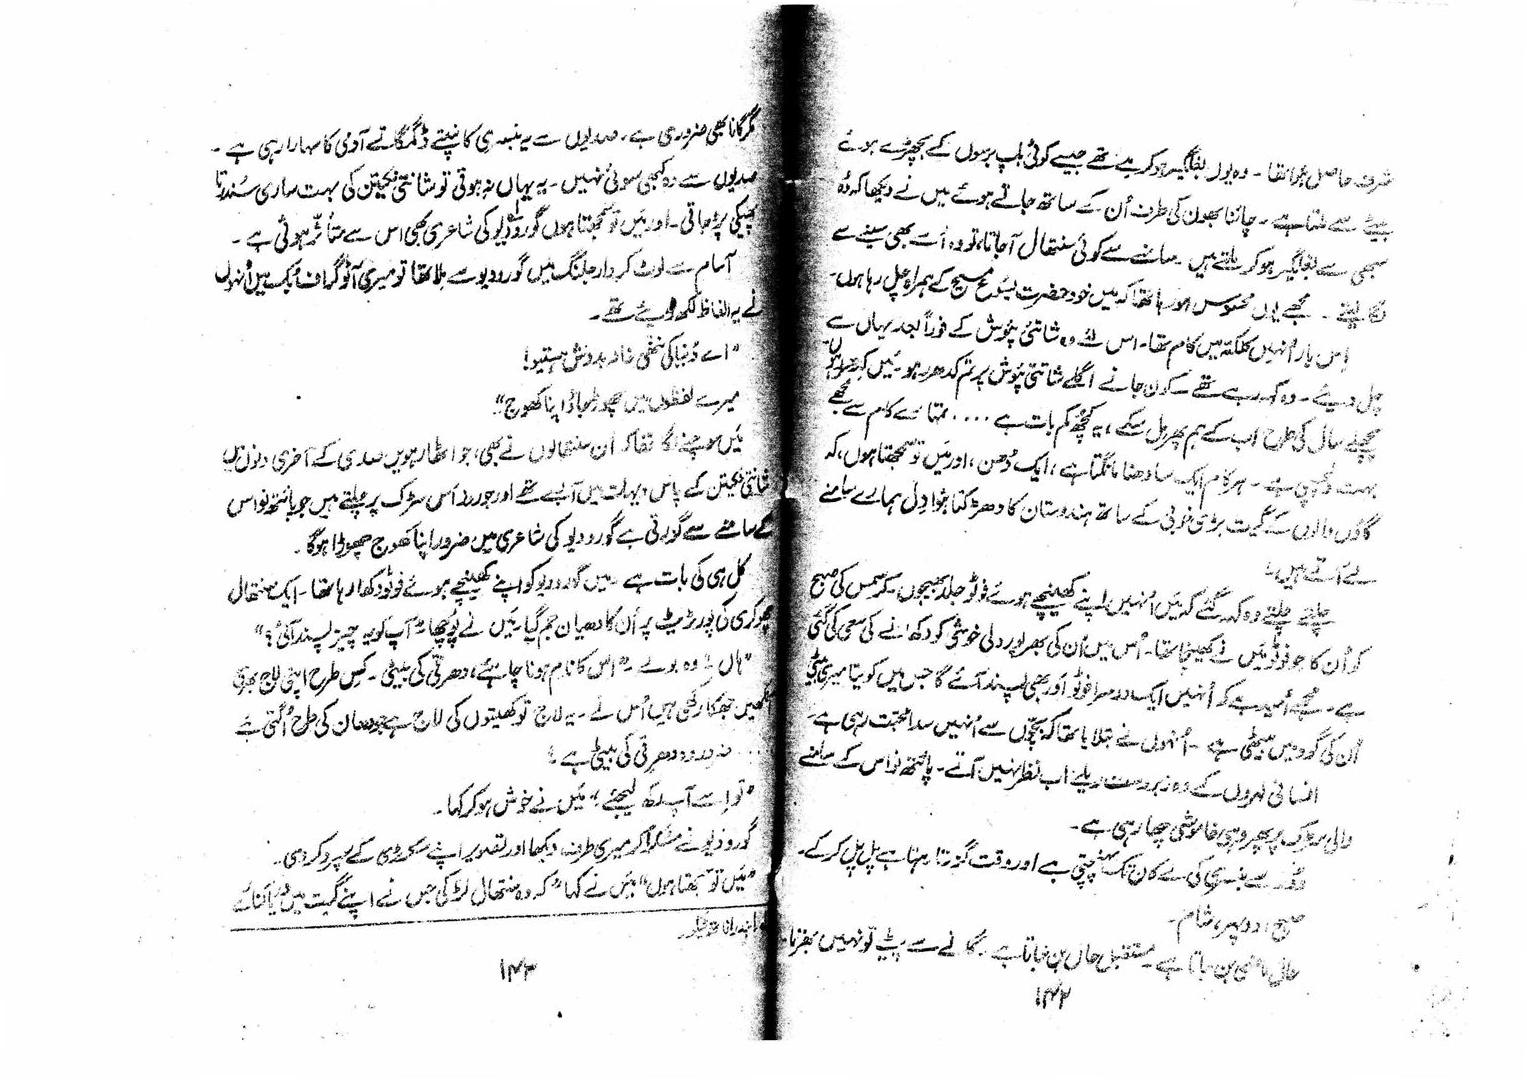 شرف حاصل ہوا تھا۔ وہ یوں بغلگیر ہو کر ملے تھے جیسے کوئی باپ برسوں کے بچھڑے ہوئے
بیٹے سے ملتا ہے۔ چائنا بھون کی طرف اُن کے ساتھ جاتے ہوئے میں نے دیکھا کہ وُہ
سبھی سے بغلگیر ہو کر ملتے ہیں۔ سامنے سے کوئی سنتھال آ جاتا، تو وہ اُسے بھی سینے سے
لگا لیتے۔ مجھے یوں محسوس ہو رہا تھا کہ میں خود حضرت یسوع مسیح کے ہمراہ چل رہا ہوں۔
اِس بار اُنہیں کلکتہ میں کام تھا۔ اس لئے وہ شانتی پَوش کے فوراً بعد یہاں سے
چل دیئے۔ وہ کہہ رہے تھے کہ کون جانے اگلے شانتی پَوش پر تم کدھر ہو۔ میں کدھر ہوں
پچھلے سال کی طرح اب کے ہم پھر مل سکے، یہ کچھ کم بات ہے .... تمہارے کام سے مجھے
بہت دلچسپی ہے۔ ہر کام ایک سادھنا مانگتا ہے، ایک دُھن، اور مَیں تو سمجھتا ہوں، کہ
گاؤں والوں کے گیت بڑی خوبی کے ساتھ ہندوستان کا دھڑکتا ہوا دِل ہمارے سامنے
لے آتے ہیں،
چلتے چلتے وہ کہہ گئے کہ مَیں اُنہیں اپنے کھینچے ہوئے فوٹو جلد بھیجوں۔ کرسمس کی صبح
کو اُن کا جو فوٹو مَیں نے کھینچا تھا۔ اُس میں اُن کی بھرپور دلی خوشی کو دکھانے کی سعی کی گئی
ہے۔ مجھے اُمید ہے کہ اُنہیں ایک دوسرا فوٹو اور بھی پسند آئے گا جس میں کویتا میری بیٹی
اُن کی گود میں بیٹھی ہے۔ اُنہوں نے بتلایا تھا کہ بچّوں سے اُنہیں سدا محبّت رہی ہے
انسانی لہروں کے وہ زبردست ریلے اب نظر نہیں آتے۔ پانتھ نواس کے سامنے
والی سڑک پر پھر وہی خاموشی چھا رہی ہے۔
دُور سے بنسری کی لَے کان تک پہنچتی ہے اور وقت گزرتا رہتا ہے پل پل کر کے۔
صبح، دوپہر، شام۔
حال ماضی بن جاتا ہے۔ مستقبل حال بن جاتا ہے۔ گانے سے پیٹ تو نہیں بھرتا
۱۴۲
مگر گانا بھی ضروری ہے۔ صدیوں سے یہ بنسری کانپتے ڈگمگاتے آدمی کا سہارا رہی ہے۔
صدیوں سے وہ کبھی سوئی نہیں۔ یہ یہاں نہ ہوتی تو شانتی نکیتن کی بہت ساری سُندرتا
پھیکی پڑ جاتی۔ اور مَیں تو سمجھتا ہوں گورو دیو کی شاعری بھی اس سے متاثر ہوئی ہے۔
آسام سے لوٹ کر دارجلنگ میں گورو دیو سے ملا تھا تو میری آٹوگراف بُک میں اُنہوں
نے یہ الفاظ لکھ دیئے تھے۔
"اے دُنیا کی ننھی خانہ بدوش ہستیو!
میرے لفظوں میں چھوڑ جاؤ اپنا کھوج"
مَیں سوچنے لگا تھا کہ اُن سنتھالوں نے بھی، جو اٹھارہویں صدی کے آخری دنوں میں
شانتی نکیتن کے پاس دیہات میں آ بسے تھے اور جو روز اُس سڑک پر چلتے ہیں جو پانتھ نواس
کے سامنے سے گزرتی ہے گورو دیو کی شاعری میں ضرور اپنا کھوج چھوڑا ہوگا۔
کل ہی کی بات ہے۔ میں گورو دیو کو اپنے کھینچے ہوئے فوٹو دکھا رہا تھا۔ ایک سنتھال
چھوکری کی پورٹریٹ پر اُن کا دھیان جم گیا۔ مَیں نے پوچھا۔ "آپ کو یہ چیز پسند آئی؟"
"ہاں" وہ بولے۔ "اس کا نام ہونا چاہئے، دھرتی کی بیٹی۔ کس طرح اپنی لاج بھری
آنکھیں جھکا رکھی ہیں اُس نے۔ یہ لاج تو کھیتوں کی لاج ہے جو دھان کی طرح اُگتی ہے
... ضرور وہ دھرتی کی بیٹی ہے؛
"تو اِسے آپ رکھ لیجئے؛ مَیں نے خوش ہو کر کہا۔
گورو دیو نے مسکرا کر میری طرف دیکھا اور تصویر اپنے سکرٹری کے سپرد کر دی۔
"مَیں تو سمجھتا ہوں" مَیں نے کہا "کہ وہ سنتھال لڑکی جس نے اپنے گیت میں
۱۴۳